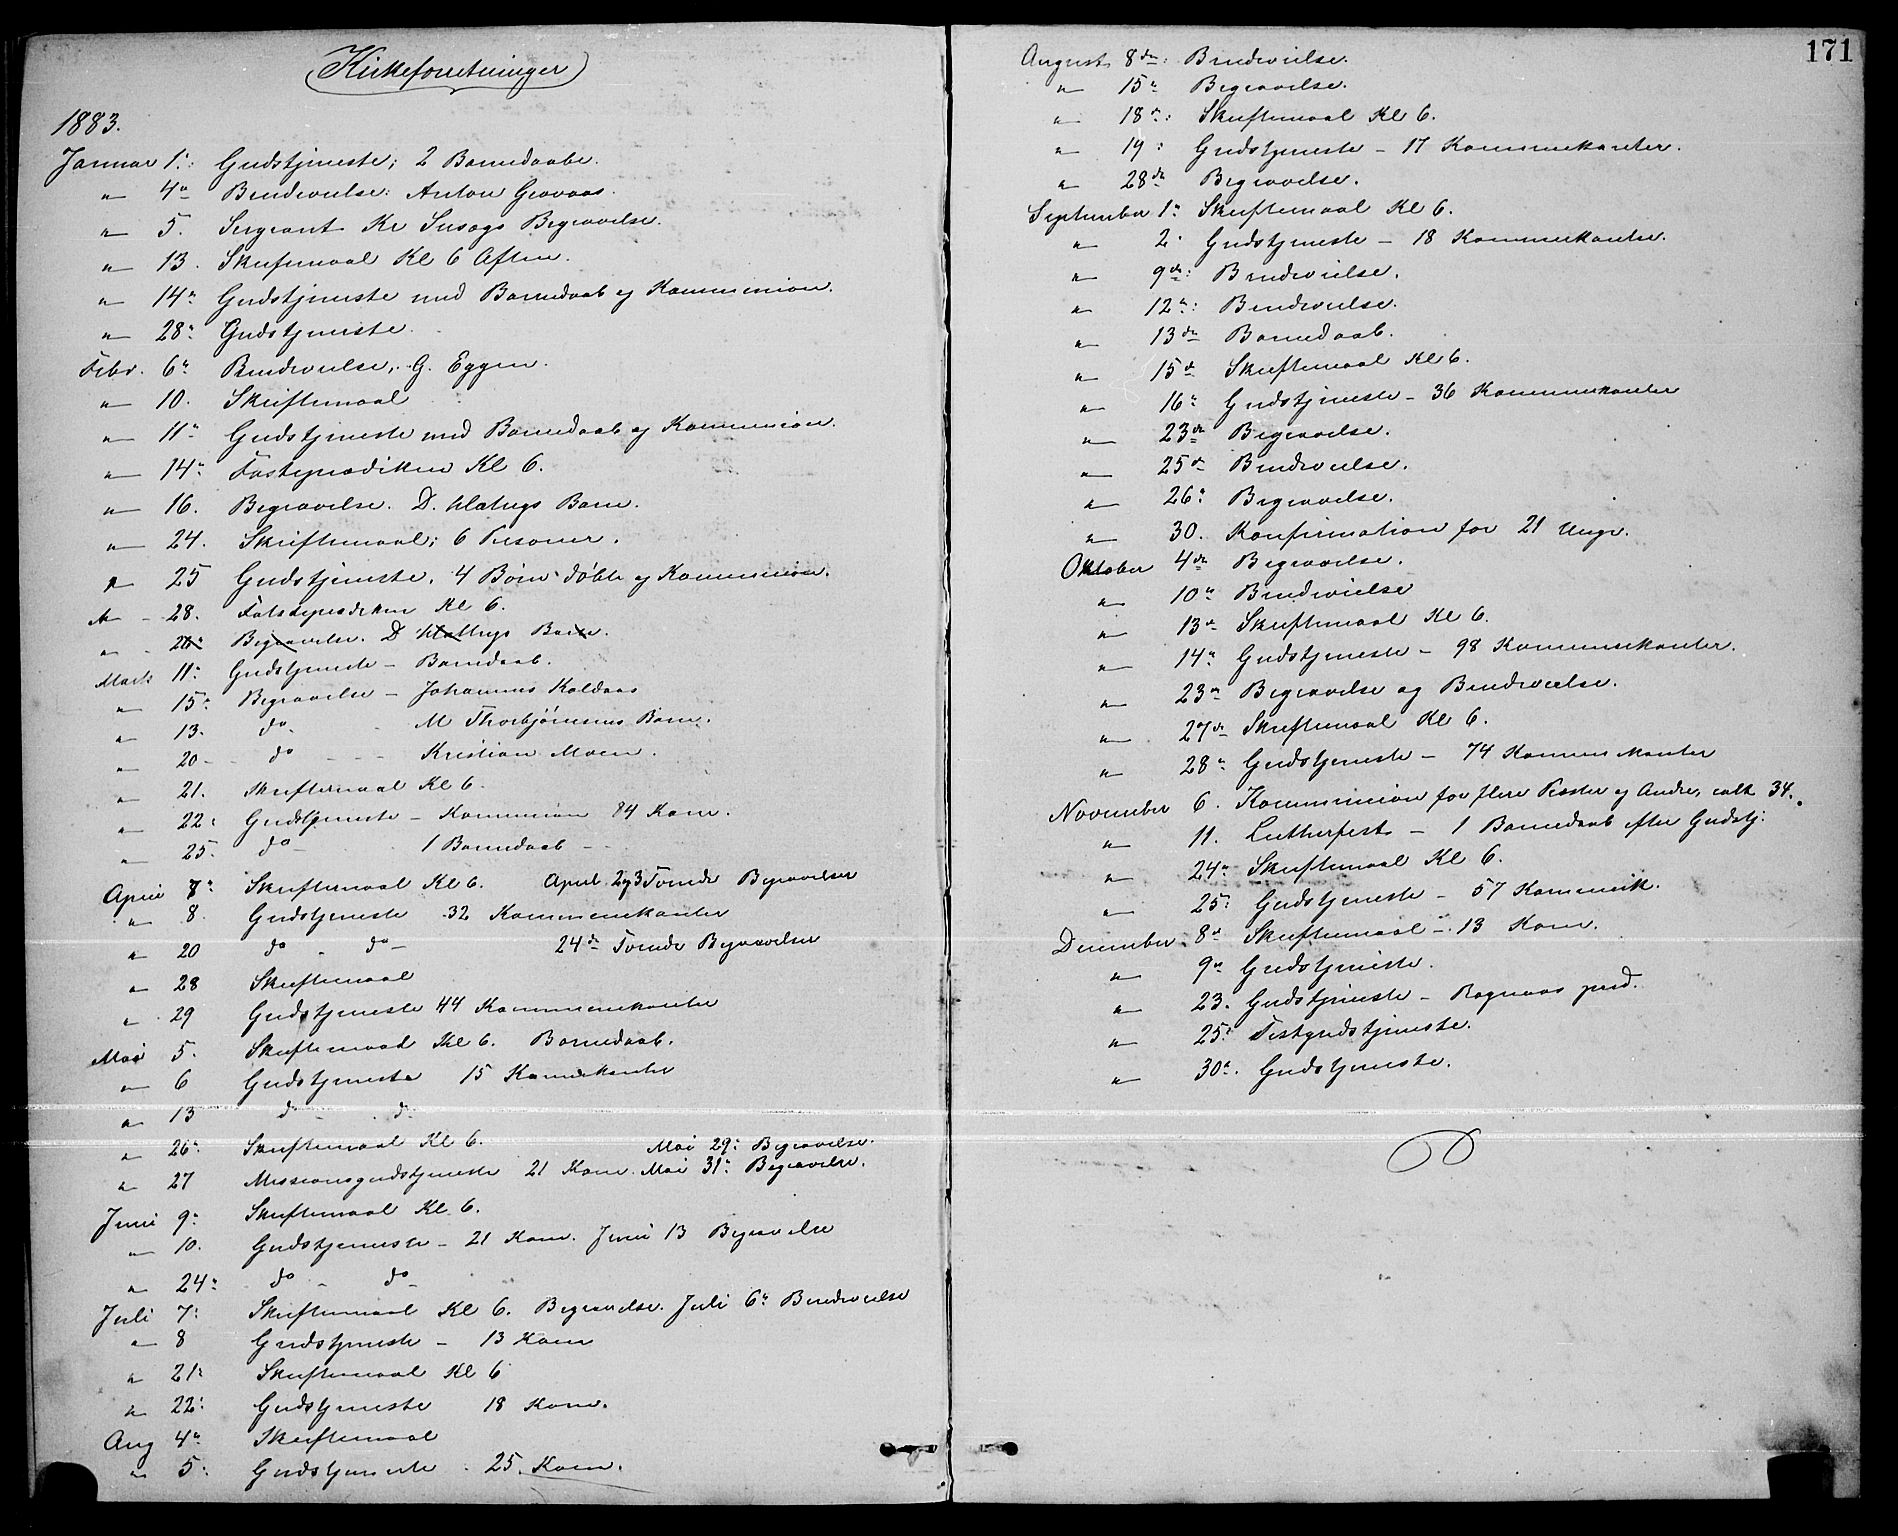 Kirkeforretninger
1883.
Januar 1: Gudstjeneste; 2 Barnedaabe.
" 4de Brudevielse: Anton
" 5. Sergeant Kr Begravelse.
" 13. Skriftemaal Kl 6 Aften.
" 14de Gudstjeneste med Barnedaab og Kommunion.
" 28: Gudstjeneste.
Febr. 6te Brudevielse, G. Eggen.
" 10. Skriftemaal
" 11te Gudstjeneste med Barnedaab og Kommunion.
" 14: Fasteprædiken Kl 6.
" 16. Begravelse. D. Barn.
" 24. Skriftemaal; 6 Personer.
" 25 Gudstjeneste, 4 Børn døbte og Kommunion.
" 28. Kl 6.
" Begravelse. D Barn.
Marts 11: Gudstjeneste – Barnedaab.
" 15: Begravelse – Johannes Kaldaas
" 13. do M Thorbjørnsens Barn.
" 20 – do – Kristian Moen.
" 21. Skriftemaal Kl 6.
" 22: Gudstjeneste – Kommunion 84 Kom.
" 25. do – 1 Barnedaab –
April 7de Skriftemaal Kl 6. April 2 og 3 Tvende Begravelser
" 8 Gudstjeneste 32 Kommunikanter
" 20 do – do – 24de Tvende Begravelser
" 28 Skriftemaal
" 29 Gudstjeneste 44 Kommunikanter
Mai 5. Skriftemaal Kl 6. Barnedaab.
" 6 Gudstjeneste 15 Komunikanter
" 13 do – do
" 26: Skriftemaal Kl 6. Mai 29: Begravelse.
" 27 Missionsgudstjeneste 21 Kom. Mai 31: Begravelse.
Juni 9: Skriftemaal Kl 6.
" 10. Gudstjeneste – 21 Kom. Juni 13 Begravelse
" 24: do – do
Juli 7: Skriftemaal Kl 6. Begravelse. Juli 6te Brudevielse
" 8 Gudstjeneste – 13 Kom
" 21: Skriftemaal Kl 6
" 22: Gudstjeneste 18 Kom.
Aug 4de Skriftemaal
" 5: Gudstjeneste – 25. Kom.
171
August 8de: Brudevielse.
" 15: Begravelse.
" 18de: Skriftemaal Kl 6.
" 19: Gudstjeneste – 17 Kommunikanter.
" 28de Begravelse.
September 1: Skriftemaal Kl 6.
" 2. Gudstjeneste – 18 Kommunikanter.
" 9de: Brudevielse.
" 12te: Brudevielse.
" 13de Barnedaab.
" 15de Skriftemaal Kl 6.
" 16: Gudstjeneste – 36 Kommunikanter
" 23de Begravelse.
" 25de Brudevielse.
" 26: Begravelse.
" 30. Konfirmation for 21 Unge.
Oktober 4de Begravelse.
" 10de Brudevielse
" 13de Skriftemaal Kl 6.
" 14: Gudstjeneste – 98 Kommunikanter.
" 23de Begravelse og Brudevielse.
" 27de Skriftemaal Kl 6.
" 28: Gudstjeneste – 74 Kommunikanter
November 6. Kommunion for flere Præster og Andre, ialt 34.
" 11. Lutherfest – 1 Barnedaab efter Gudstj:
" 24: Skriftemaal Kl 6.
" 25: Gudstjeneste – 57 Kommunik.
December 8de Skriftemaal – 13 Kom.
" 9de Gudstjeneste.
" 23. Gudstjeneste – Rognaas præd.
" 25: Festgudstjeneste.
" 30te. Gudstjeneste.